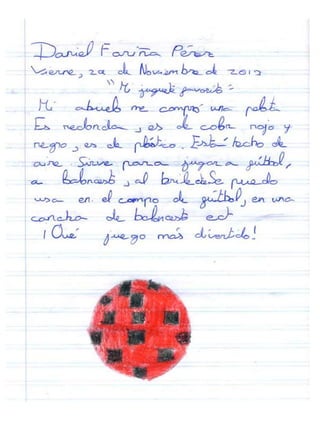 Daniel Fariña Pérez
Vierne, 29 de Noviembre de 2013
"Mi juguete favorito"
Mi abuelo me compró una pelota
Es redonda, es de color rojo y
negro, es de plástico. Está techo de
aire. Sirve para jugar a fútbol,
a baloncesto, al Se puedo
usa en el campo de fútbol, en una
cancha de baloncesto ect
¡Qué juego más divertido!